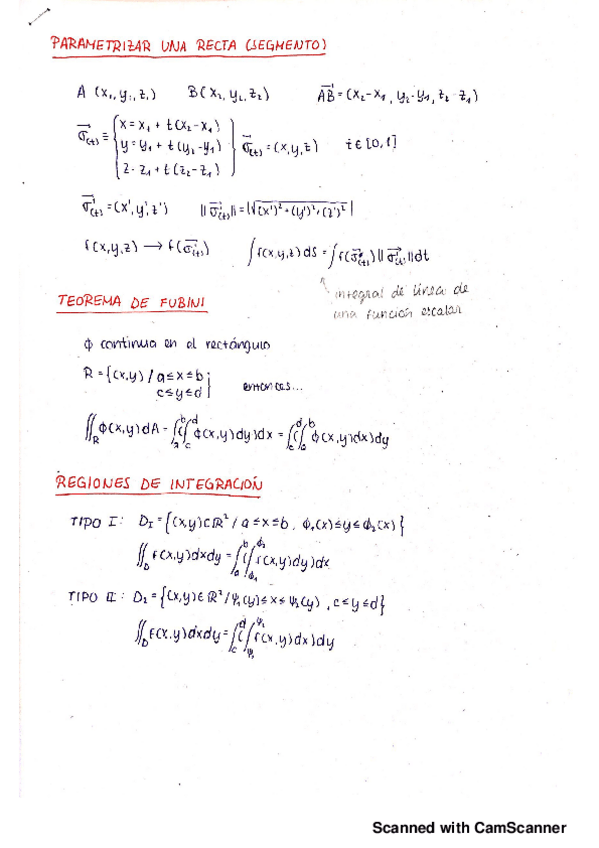 PARAMETRIZAR UNA RECTA (SEGMENTO)
A (x₁, y₁, z₁) B(x₂, y₂, z₂) AB⃗ = (x₂-x₁, y₂-y₁, z₂-z₁)
σ⃗(t) ≡ { x = x₁ + t(x₂-x₁)
y = y₁ + t(y₂-y₁) } σ⃗(t) = (x,y,z) t ∈ [0,1]
z = z₁ + t(z₂-z₁)
σ⃗'(t) = (x', y', z') ||σ⃗'(t)|| = |√(x')²+(y')²+(z')²|
f(x,y,z) → f(σ⃗(t)) ∫f(x,y,z)dS = ∫f(σ⃗(t)) ||σ⃗'(t)||dt
integral de línea de
una función escalar
TEOREMA DE FUBINI
ϕ continua en el rectángulo
R = {(x,y) / a≤x≤b;
c≤y≤d} entonces...
∬_R ϕ(x,y)dA = ∫_a^b(∫_c^d ϕ(x,y)dy)dx = ∫_c^d(∫_a^b ϕ(x,y)dx)dy
REGIONES DE INTEGRACIÓN
TIPO I: D_I = {(x,y)∈ℝ² / a≤x≤b, ϕ₁(x)≤y≤ϕ₂(x)}
∬_D f(x,y)dxdy = ∫_a^b(∫_ϕ₁^ϕ₂ f(x,y)dy)dx
TIPO II: D₂ = {(x,y)∈ℝ² / ψ₁(y)≤x≤ψ₂(y), c≤y≤d}
∬_D f(x,y)dxdy = ∫_c^d(∫_ψ₁^ψ₂ f(x,y)dx)dy
Scanned with CamScanner